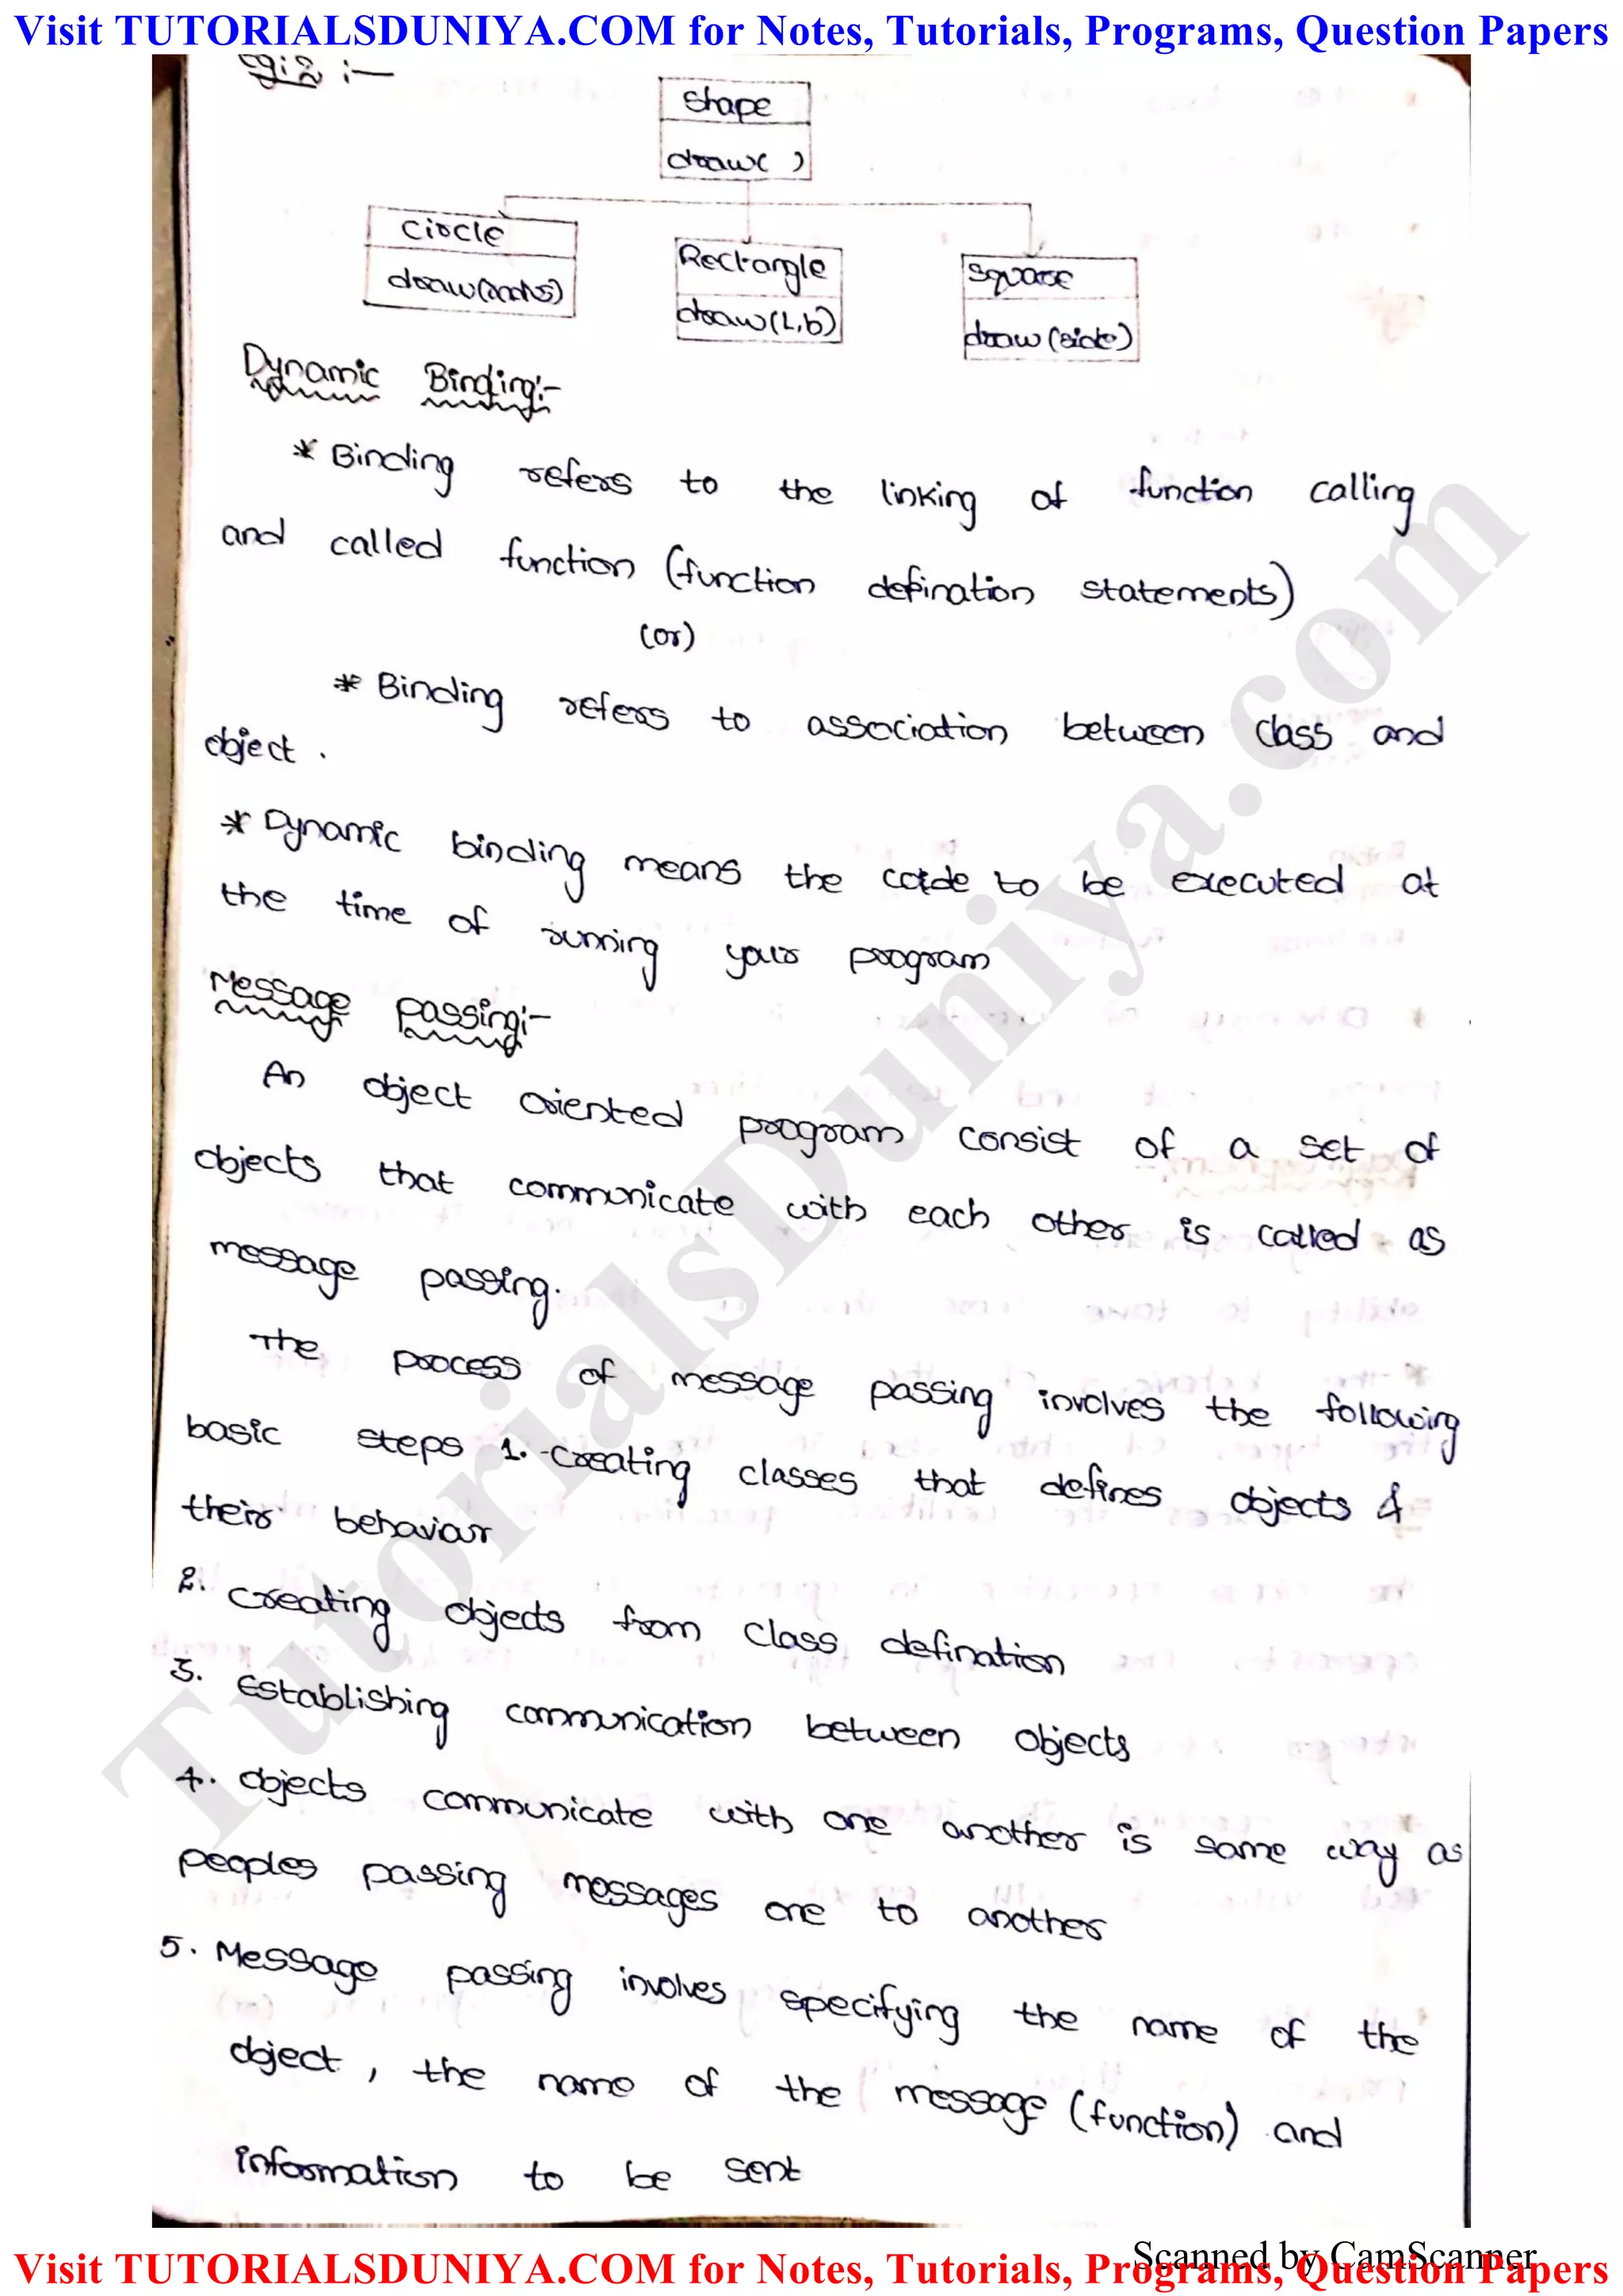 Visit TUTORIALSDUNIYA.COM for Notes, Tutorials, Programs, Question Papers
Eg:2 :-
Shape
draw( )
Circle
draw(radius)
Rectangle
draw(L,b)
Square
draw(side)
Dynamic Binding:-
* Binding refers to the linking of function calling
and called function (function defination statements)
(or)
* Binding refers to association between class and
object.
* Dynamic binding means the code to be executed at
the time of running your program
Message passing:-
An object oriented program consist of a set of
objects that communicate with each other is called as
message passing.
The process of message passing involves the following
basic steps 1. Creating classes that defines objects &
their behaviour
2. Creating objects from class defination
3. Establishing communication between objects
4. Objects communicate with one another is same way as
peoples passing messages one to another
5. Message passing involves specifying the name of the
object, the name of the message (function) and
information to be sent
TutorialsDuniya.com
Scanned by CamScanner
Visit TUTORIALSDUNIYA.COM for Notes, Tutorials, Programs, Question Papers